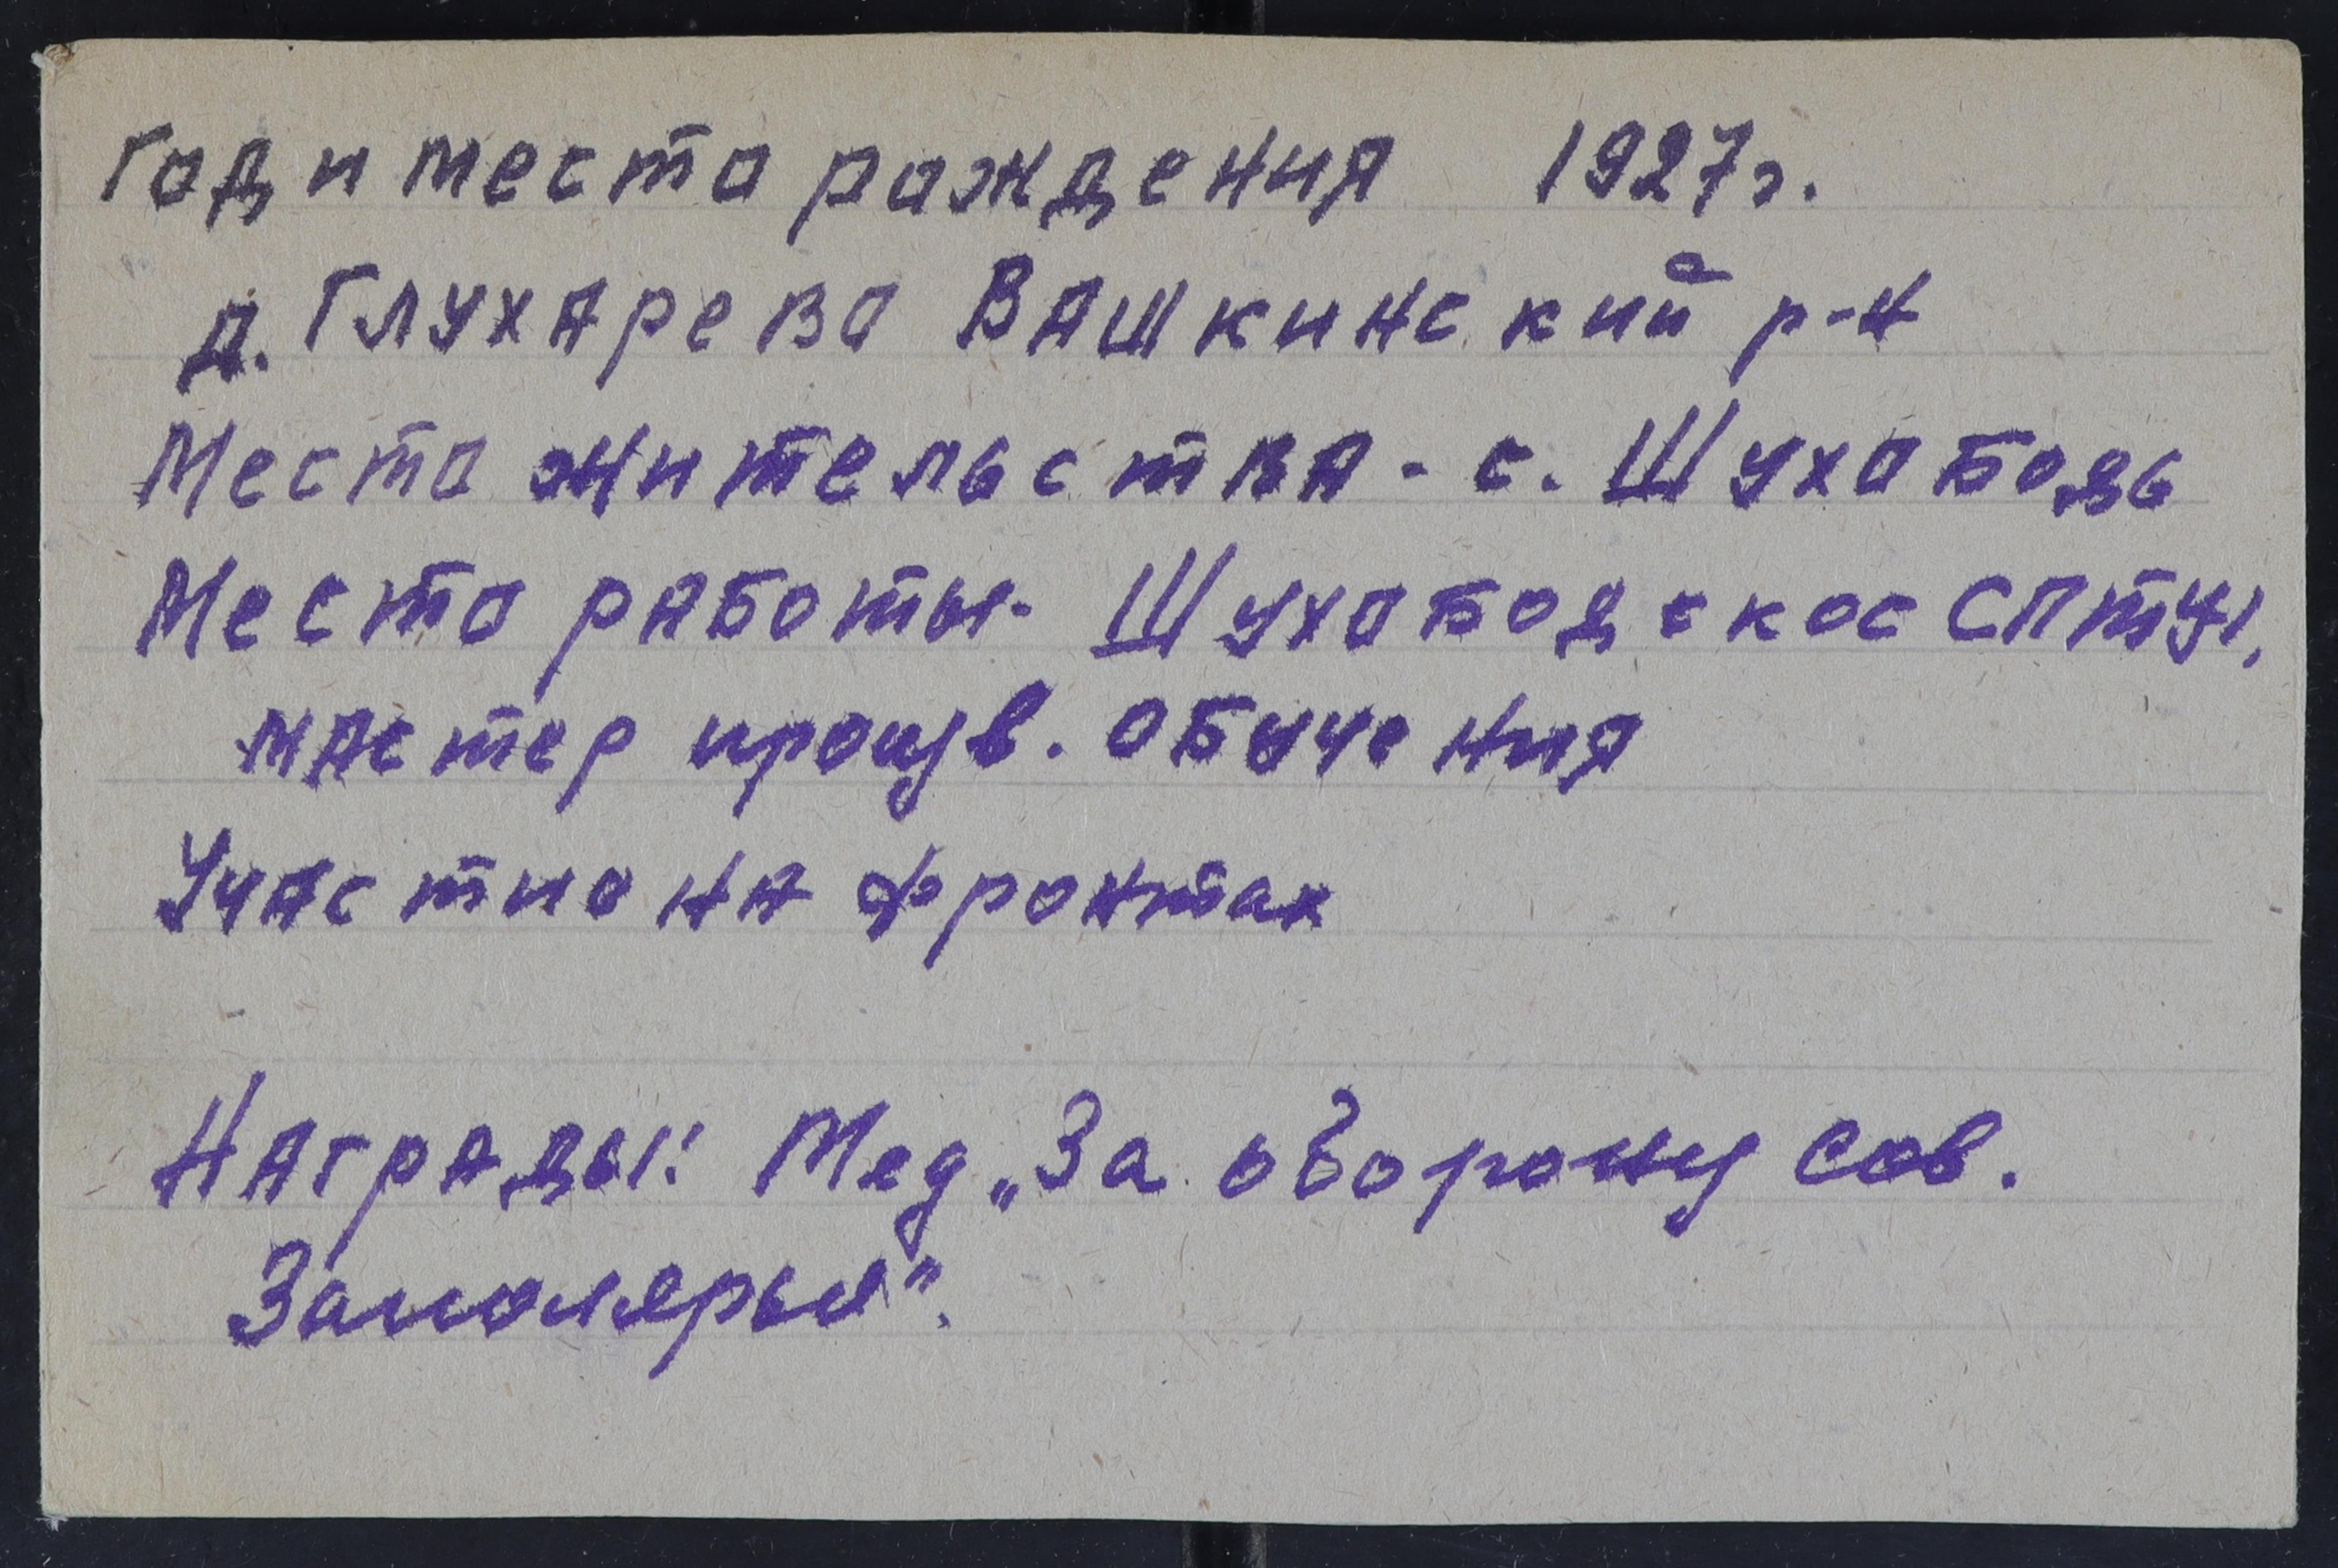 Год и место рождения 1927г.
д. Глухарево Вашкинский р-н
Место жительства - с. Шухободь
Место работы - Шухободское СПТУ,
мастер произв. обучения
Участие на фронтах
Награды: Мед „За оборону Сов.
Заполярья".